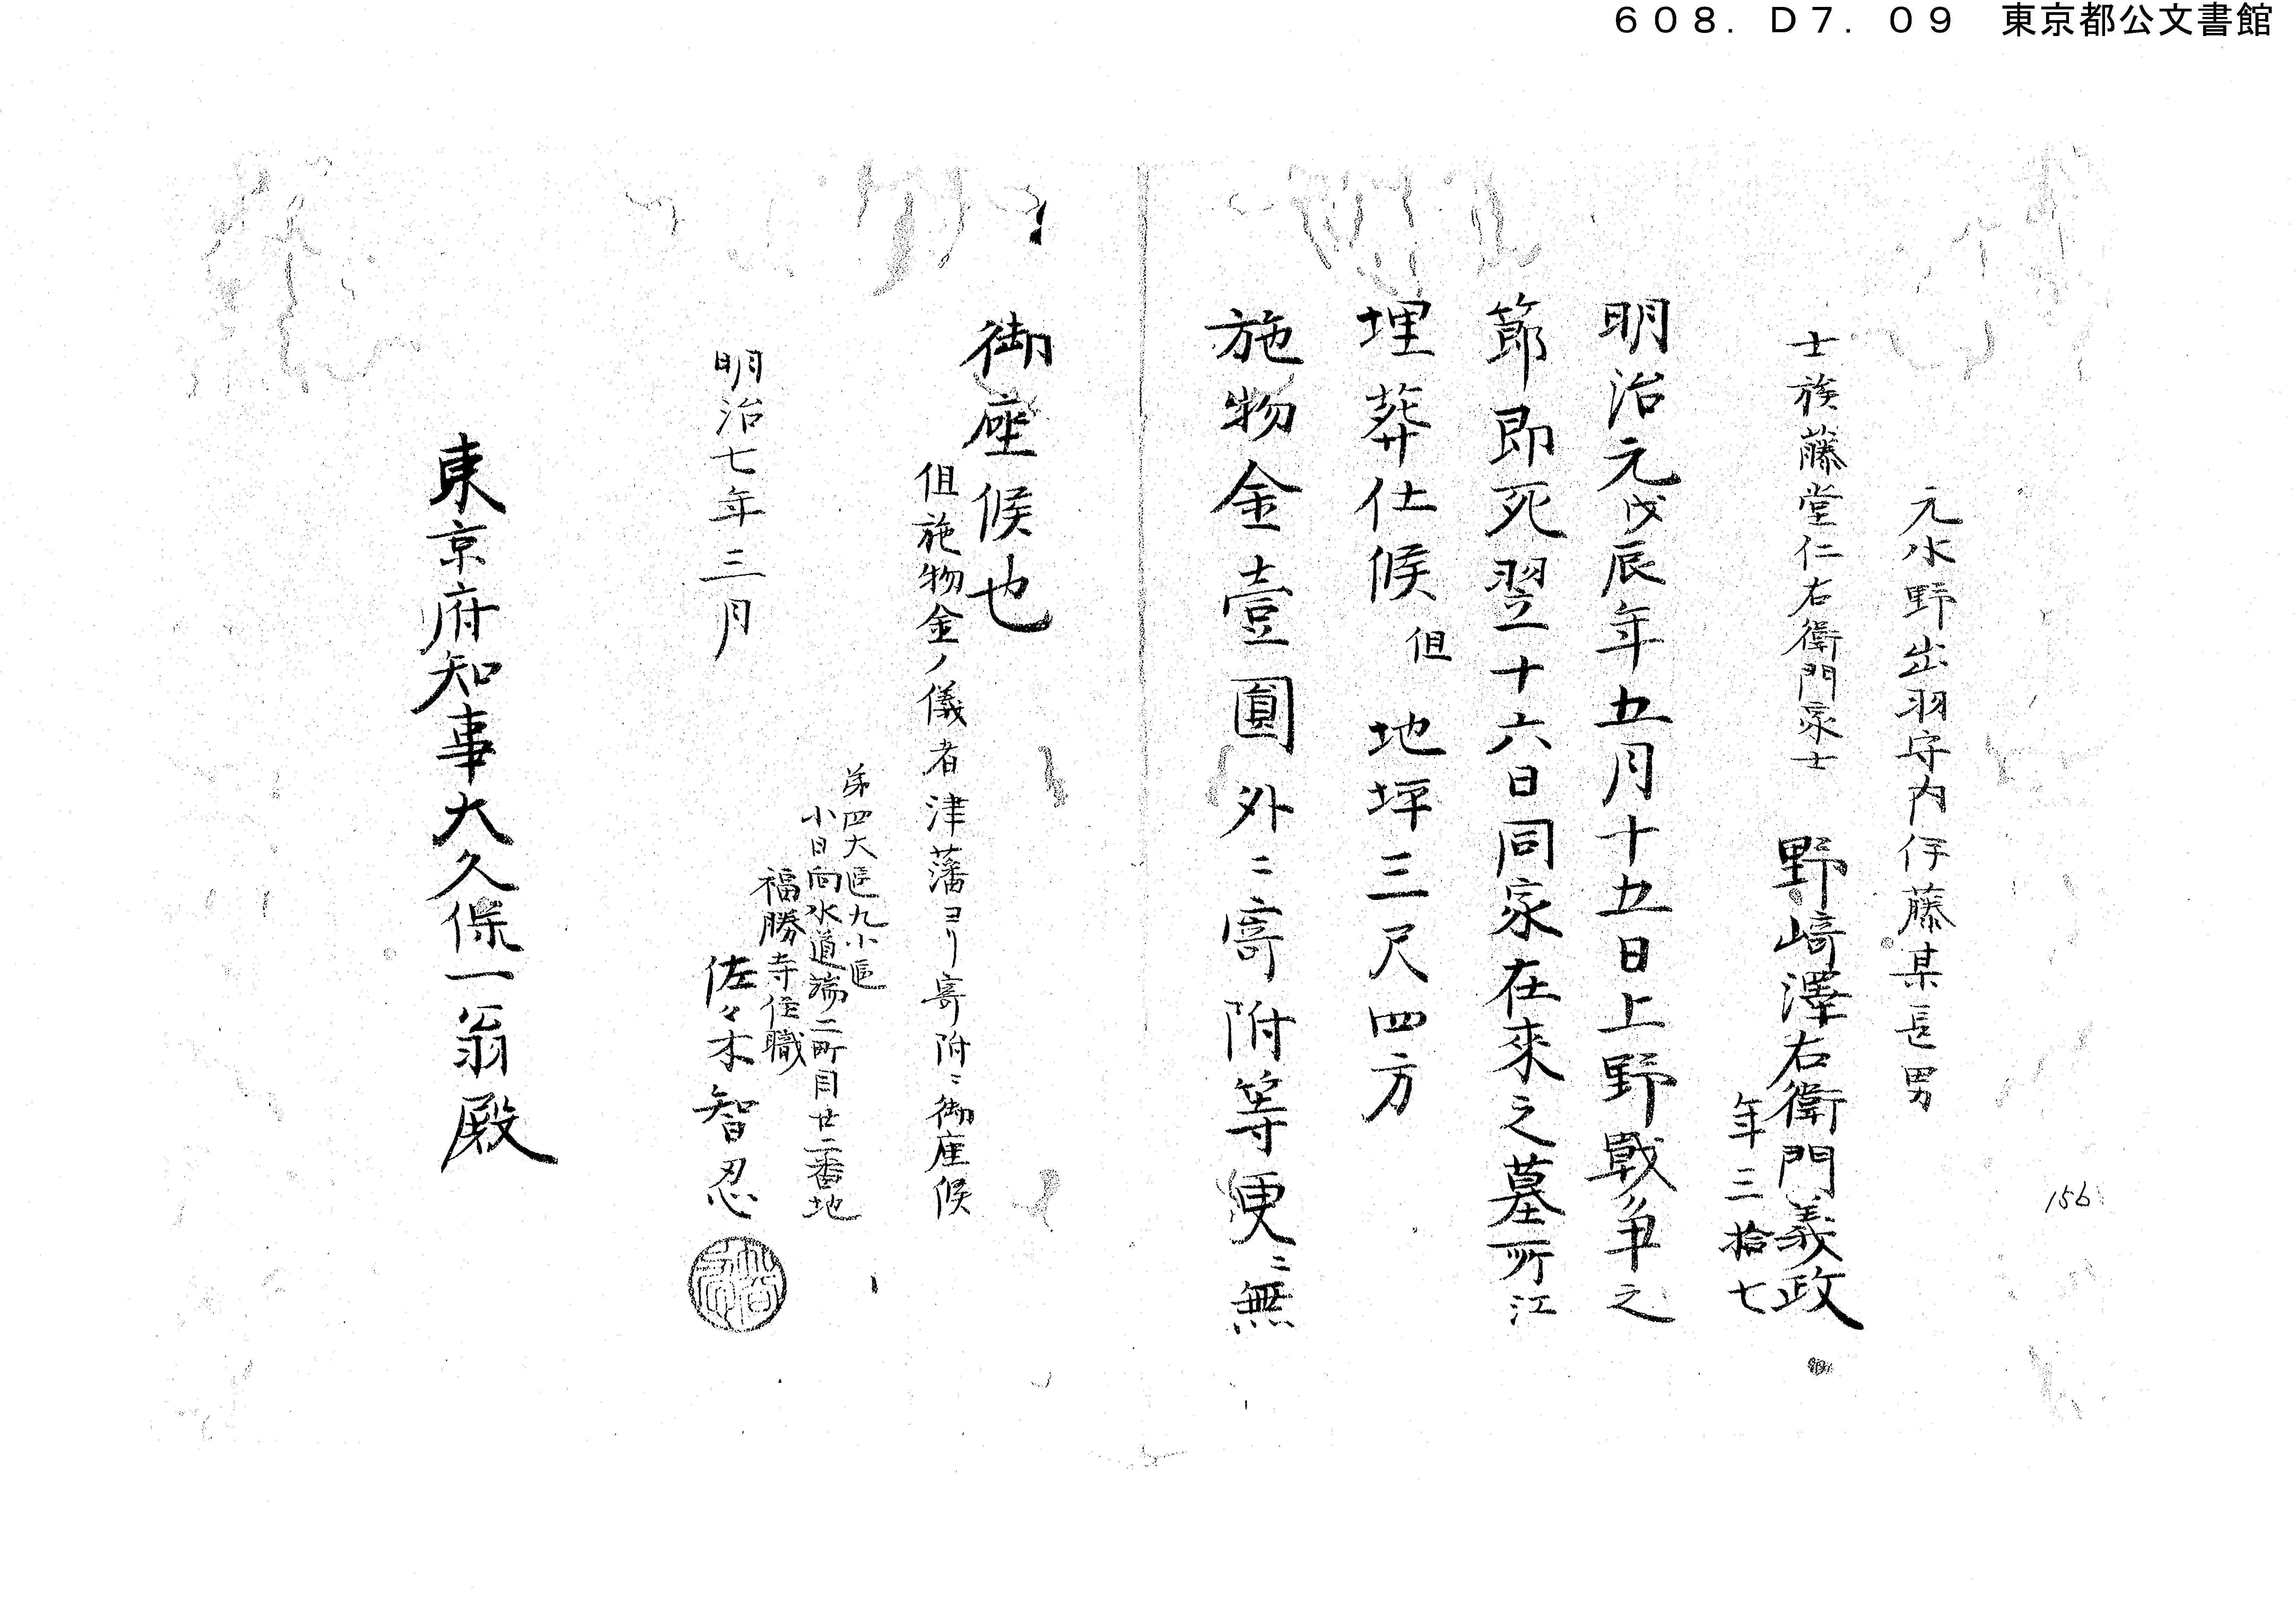 ６０８．Ｄ７．０９　東京都公文書館
元水野出羽守内伊藤某長男
士族藤堂仁右衛門家士　野﨑澤右衛門義政
年三拾七
明治元戊辰年五月十五日上野戰争之
節即死翌十六日同家在來之墓所江
埋葬仕候　但　地坪三尺四方
施物金壹圓外ニ寄附等更ニ無
御座候也
但施物金ノ儀者津藩ヨリ寄附ニ御座候
第四大區九小區
小日向水道端二町目廿二番地
福勝寺住職
佐々木智忍
明治七年三月
東京府知事大久保一翁殿
156